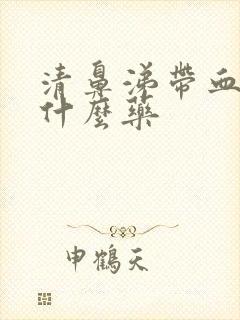 清鼻涕带血
什麼药
申鹤天